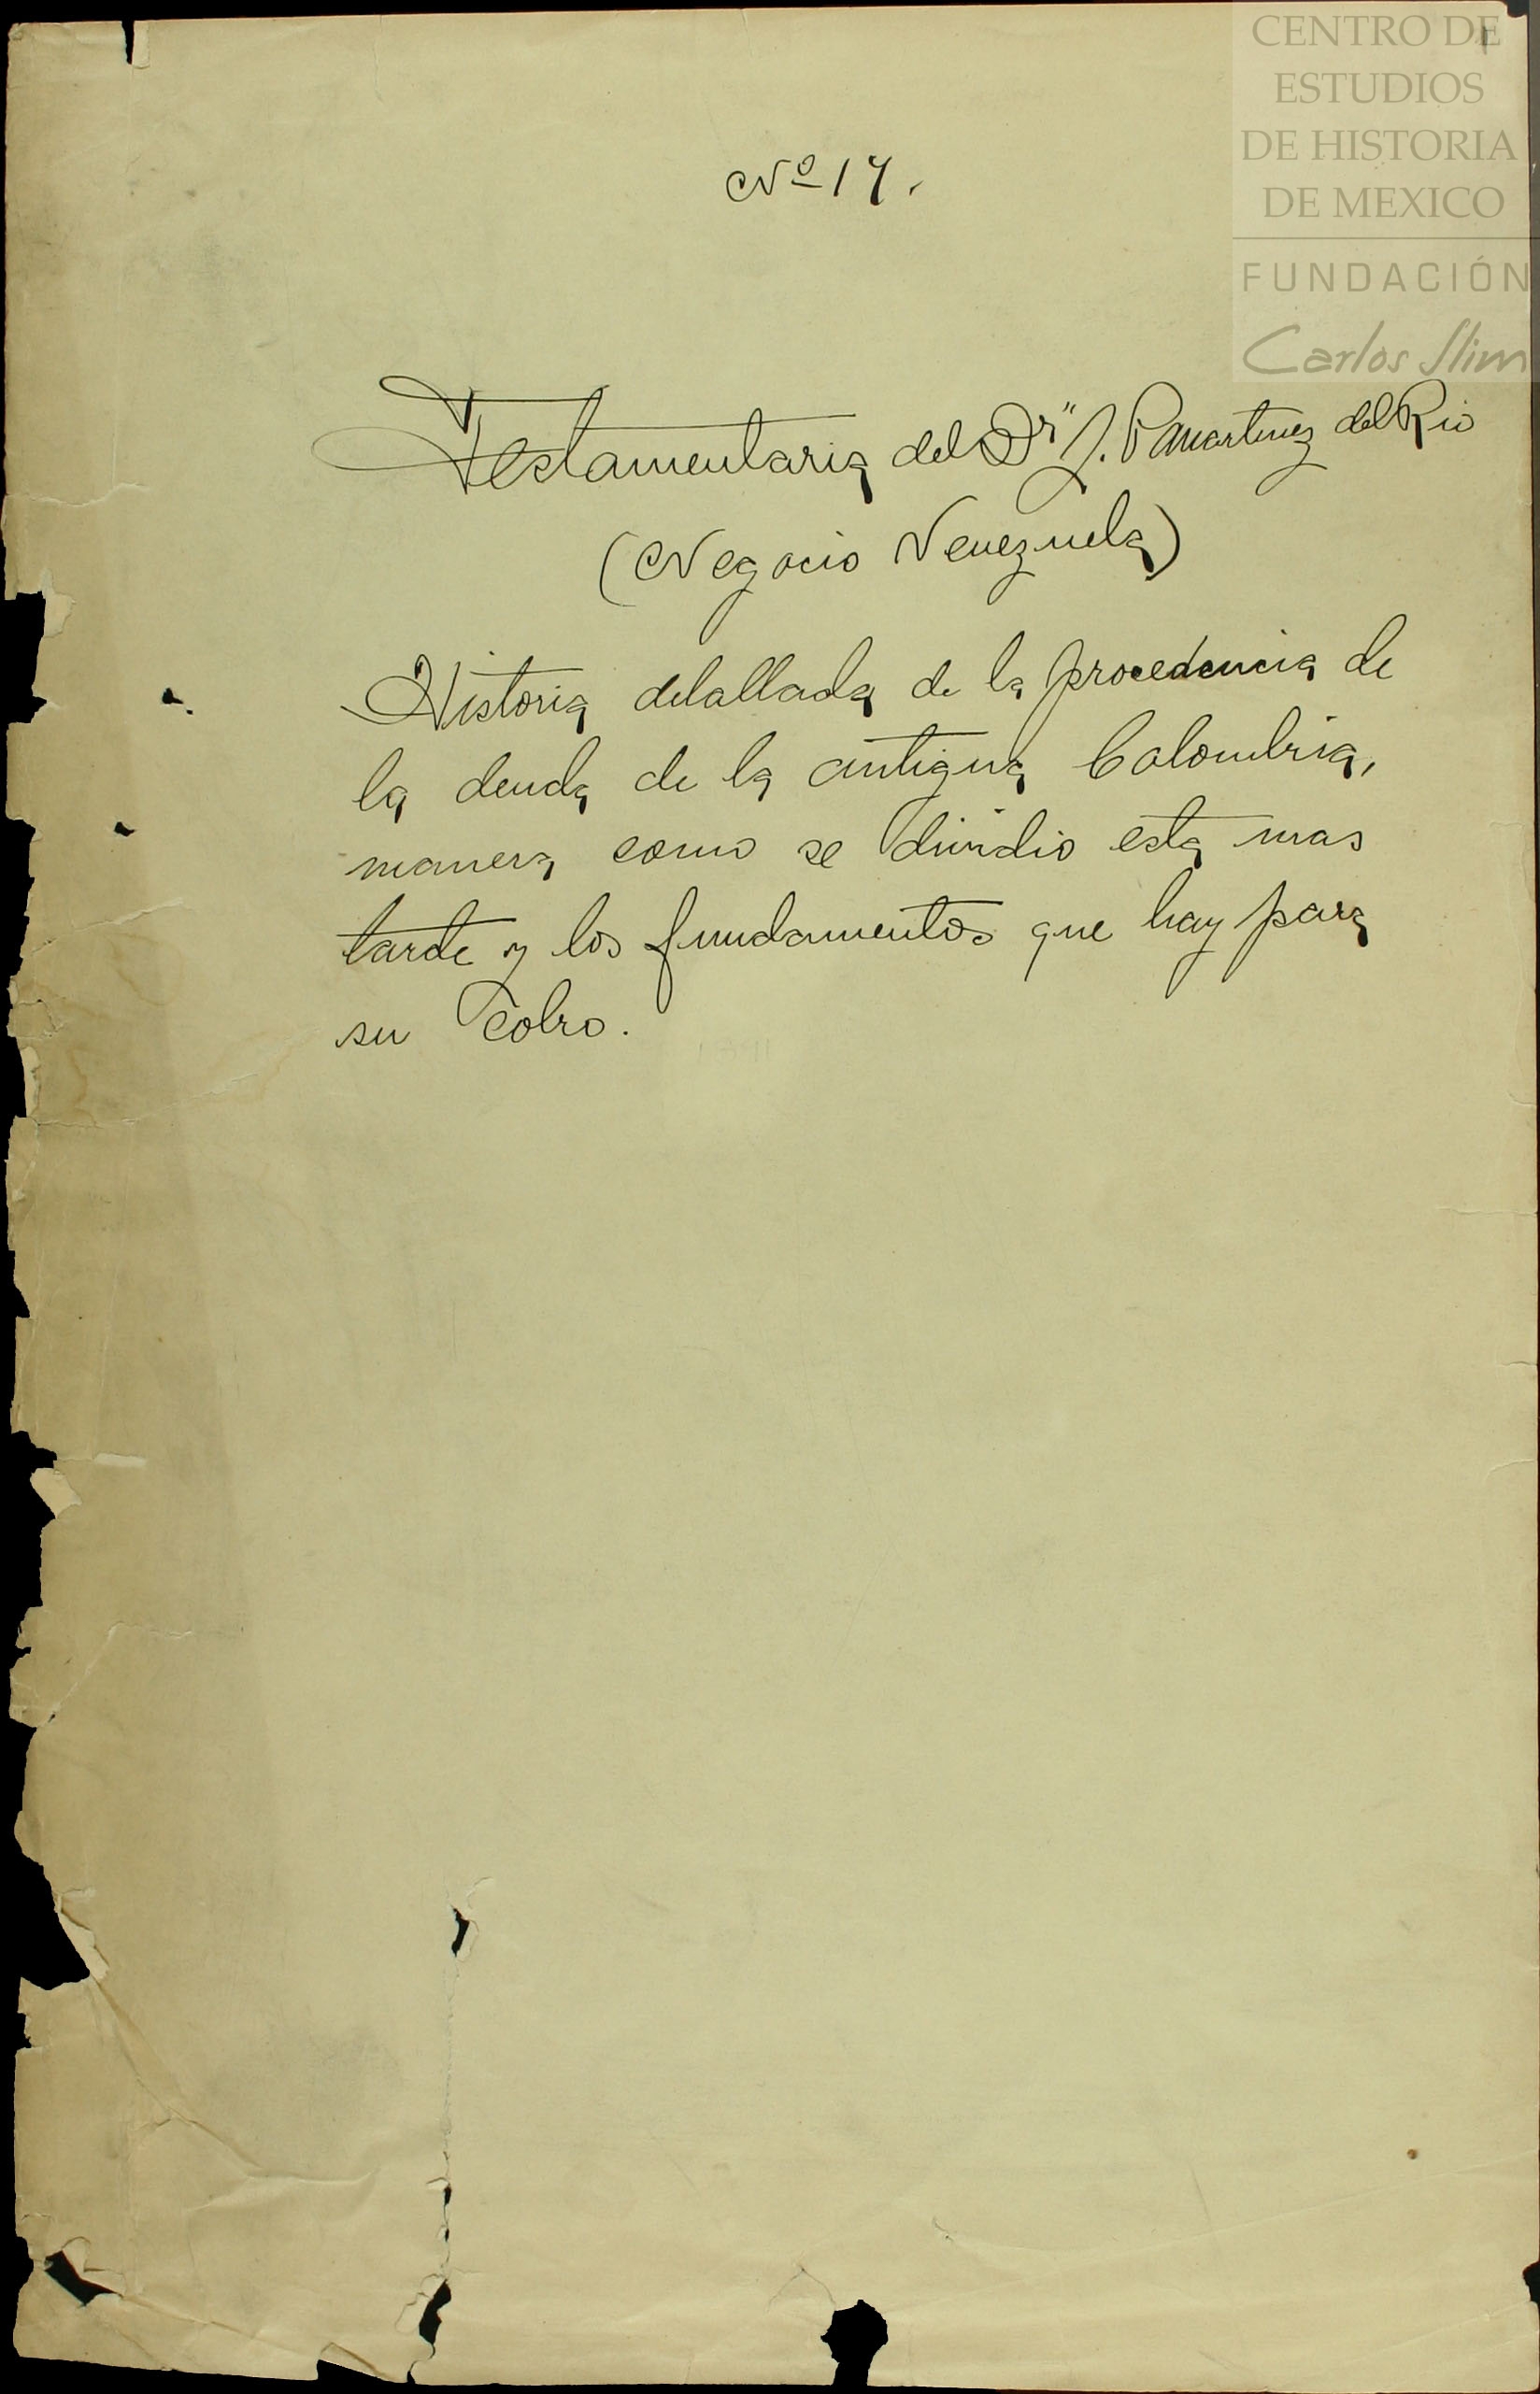 CENTRO DE
ESTUDIOS
DE HISTORIA
DE MEXICO
FUNDACIÓN
Carlos Slim
Nº 17.
Testamentaria del Dr J. P. Martinez del Rio
(Negocio Venezuela)
Historia detallada de la procedencia de
la deuda de la antigua Colombia,
manera como se dividio esta mas
tarde y los fundamentos que hay para
su cobro.